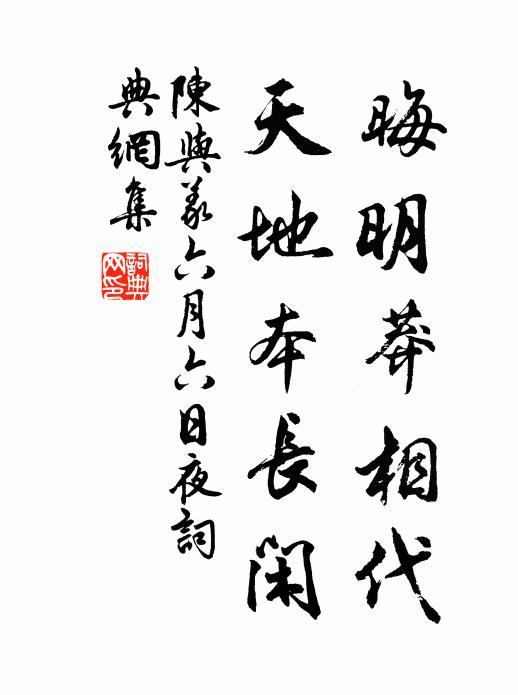 晦明莽相代
天地本長閑
陳與義六月六日夜詞
典網集
詞典网印